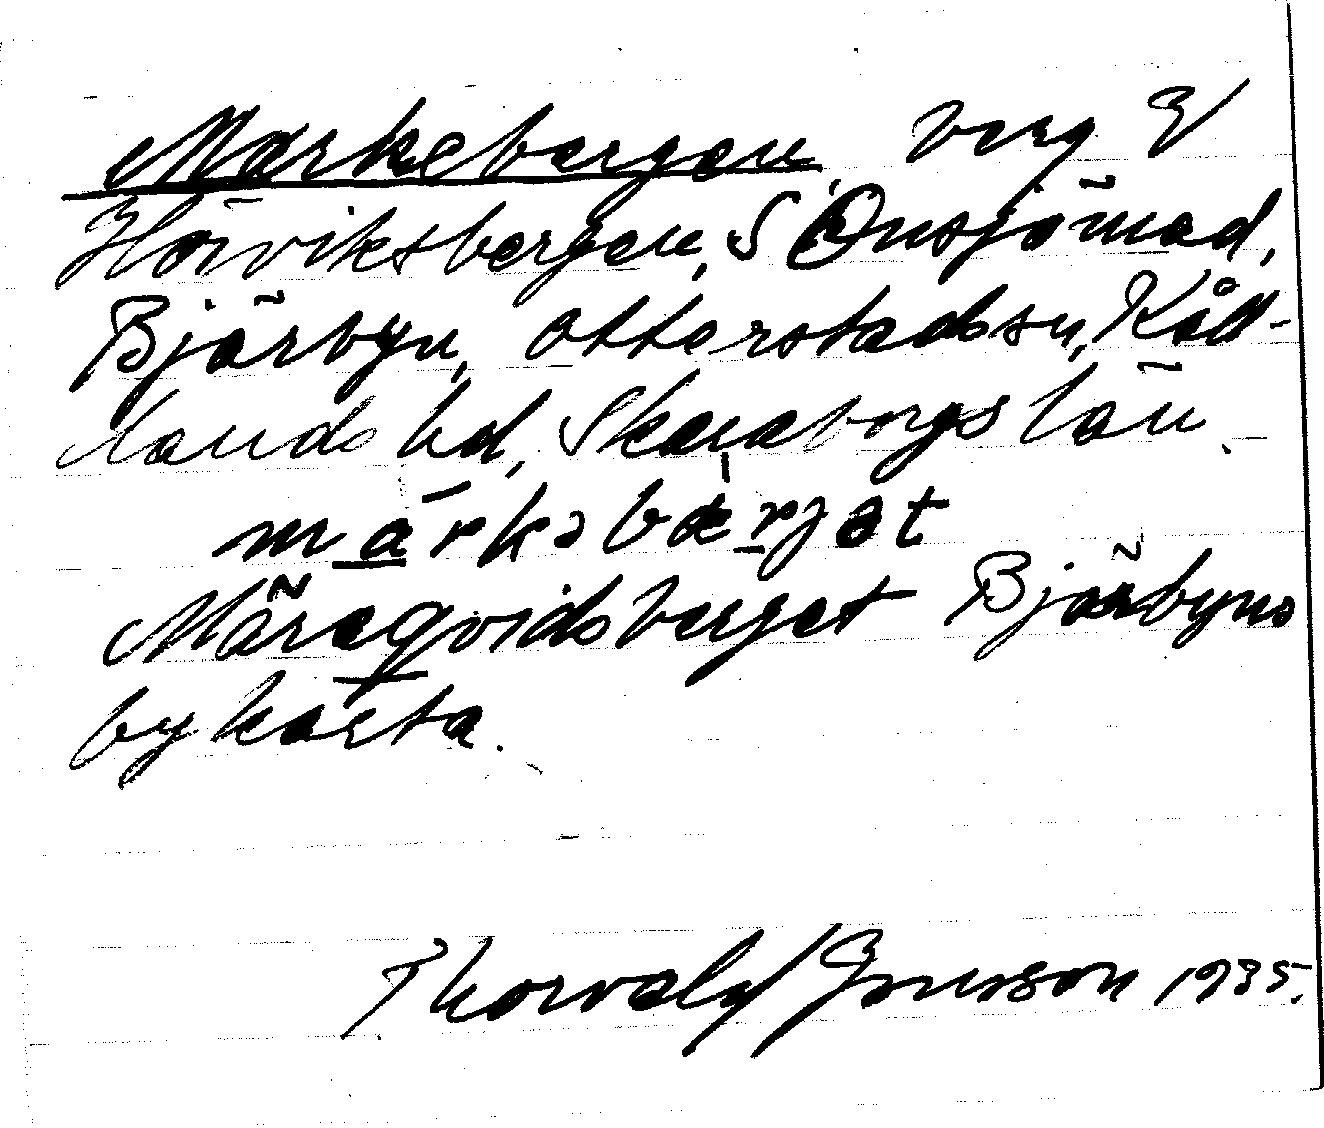 Markebergen, berg V
Hörviksbergen, S Önsjömad,
Bjärbyn, Otterstads sn, Kål-
lands hd, Skaraborgs län.
mārkəbærjət
Märeqvidsberget Bjärbyns
bykarta.
Thorvald Jonsson 1935.